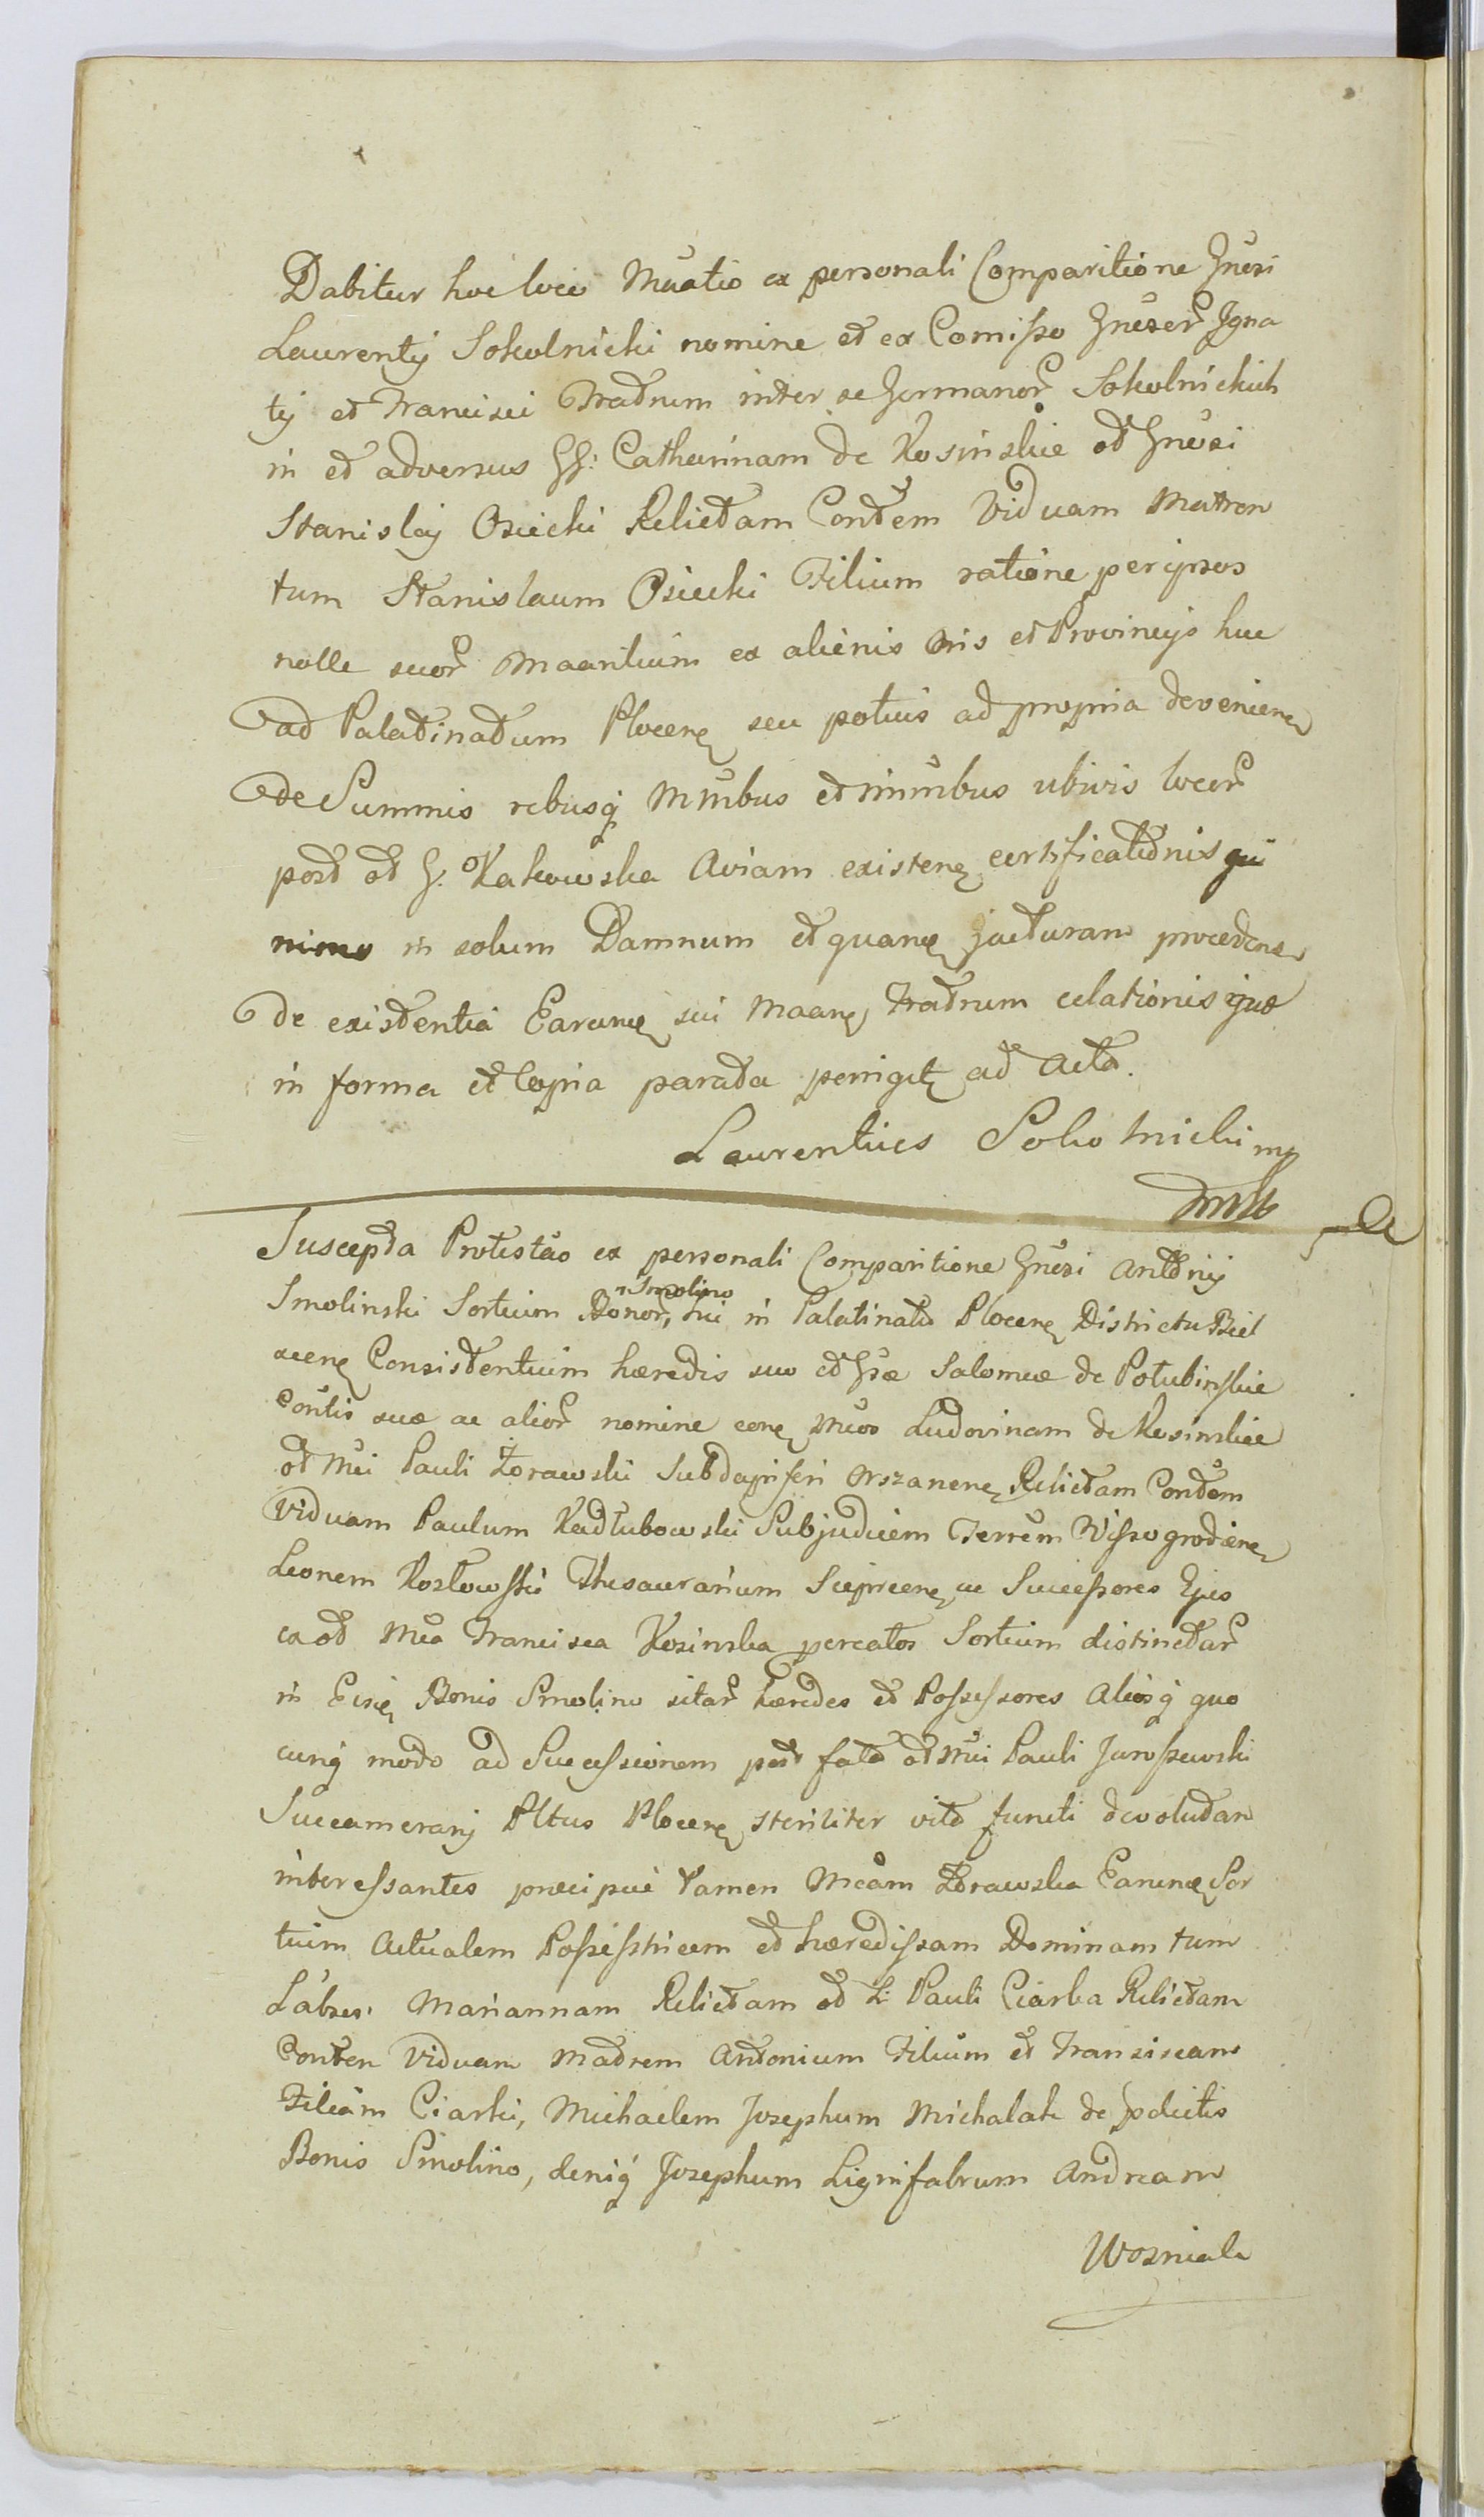 Dabitur hoc loco Mãtio ex personali Comparitione Gnẽsi
Laurentij Sokolnicki nomine et ex Comisso Gnẽser̃ Igna
tij et Francisci Fratrum inter se Germanor̃ Sokolnickich
in et adversus GG: Catharinam de Kosinskie ol̃ Gnẽsi
Stanislaj Osiecki Relictam Cont̃em Viduam Matrem
tum Stanislaum Osiecki Filium ratione per ipsos
nolle suor̃ ex alienis et Provincijs huc
ad Palatinatum Plocen̨ seu potius ad propria devenien̨
de Summis rebusq̨ Mm̃bus et imm̃bus ubivis locor̃
post ol̃ G. Kakowska Aviam existen̨ certificatõnis
nimo in solum Damnum et jacturam
de existentia sui Fratrum celationis quæ
in forma et Copia parata porrigit̨ ad Acta.
Laurentius Sokolnicki mp
Suscepta Protestãõ ex personali Comparitione Gnẽsi Antõnij
Smolinski Sortium Bonor̃, in Palatinatu Plocen̨ Districtu Biel
Smolino
scen̨ Consistentium hæredis suo et Gsæ Salomeæ de Potubinskie
Con̄tis suæ ac alior̃ nomine con̨ Mẽos Ludovinam de Kosinskie
ol̃ Mẽi Pauli Żorawski Subdapiferi Orszanen̨ Relictam Cont̃em
Viduam Paulum Kadłubowski Subjudicem Terrẽm Wissogrodien̨
Leonem Kozłowski Thesaurarium ac Successores Ejus
ex ol̃ Mẽa Francisca Kosinska percatos Sortium distinctar̃
in Bonis Smolino sitar̃ hæredes et Possessores Aliosq̨ quo
cunq̨ modo ad Successionem post fata ol̃ Mẽi Pauli Jaroszewski
Succamerarij Pltus Plocen̨ steriliter vita functi devolutam
interessantes præcipuè tamen Mẽam Żorawska Sor
tium Actualem Possesstricem et hæredissam Dominam tum
Labres: Mariannam Relictam ol̃ L: Pauli Ciarka Relictam
Conten Viduam Matrem Antonium Filium et Franciscam
Filiam Ciarki, Michaelem Josephum Michalak de pdictis
Bonis Smolino, deniq̨ Josephum Lignifabrum Andream
Wozniak